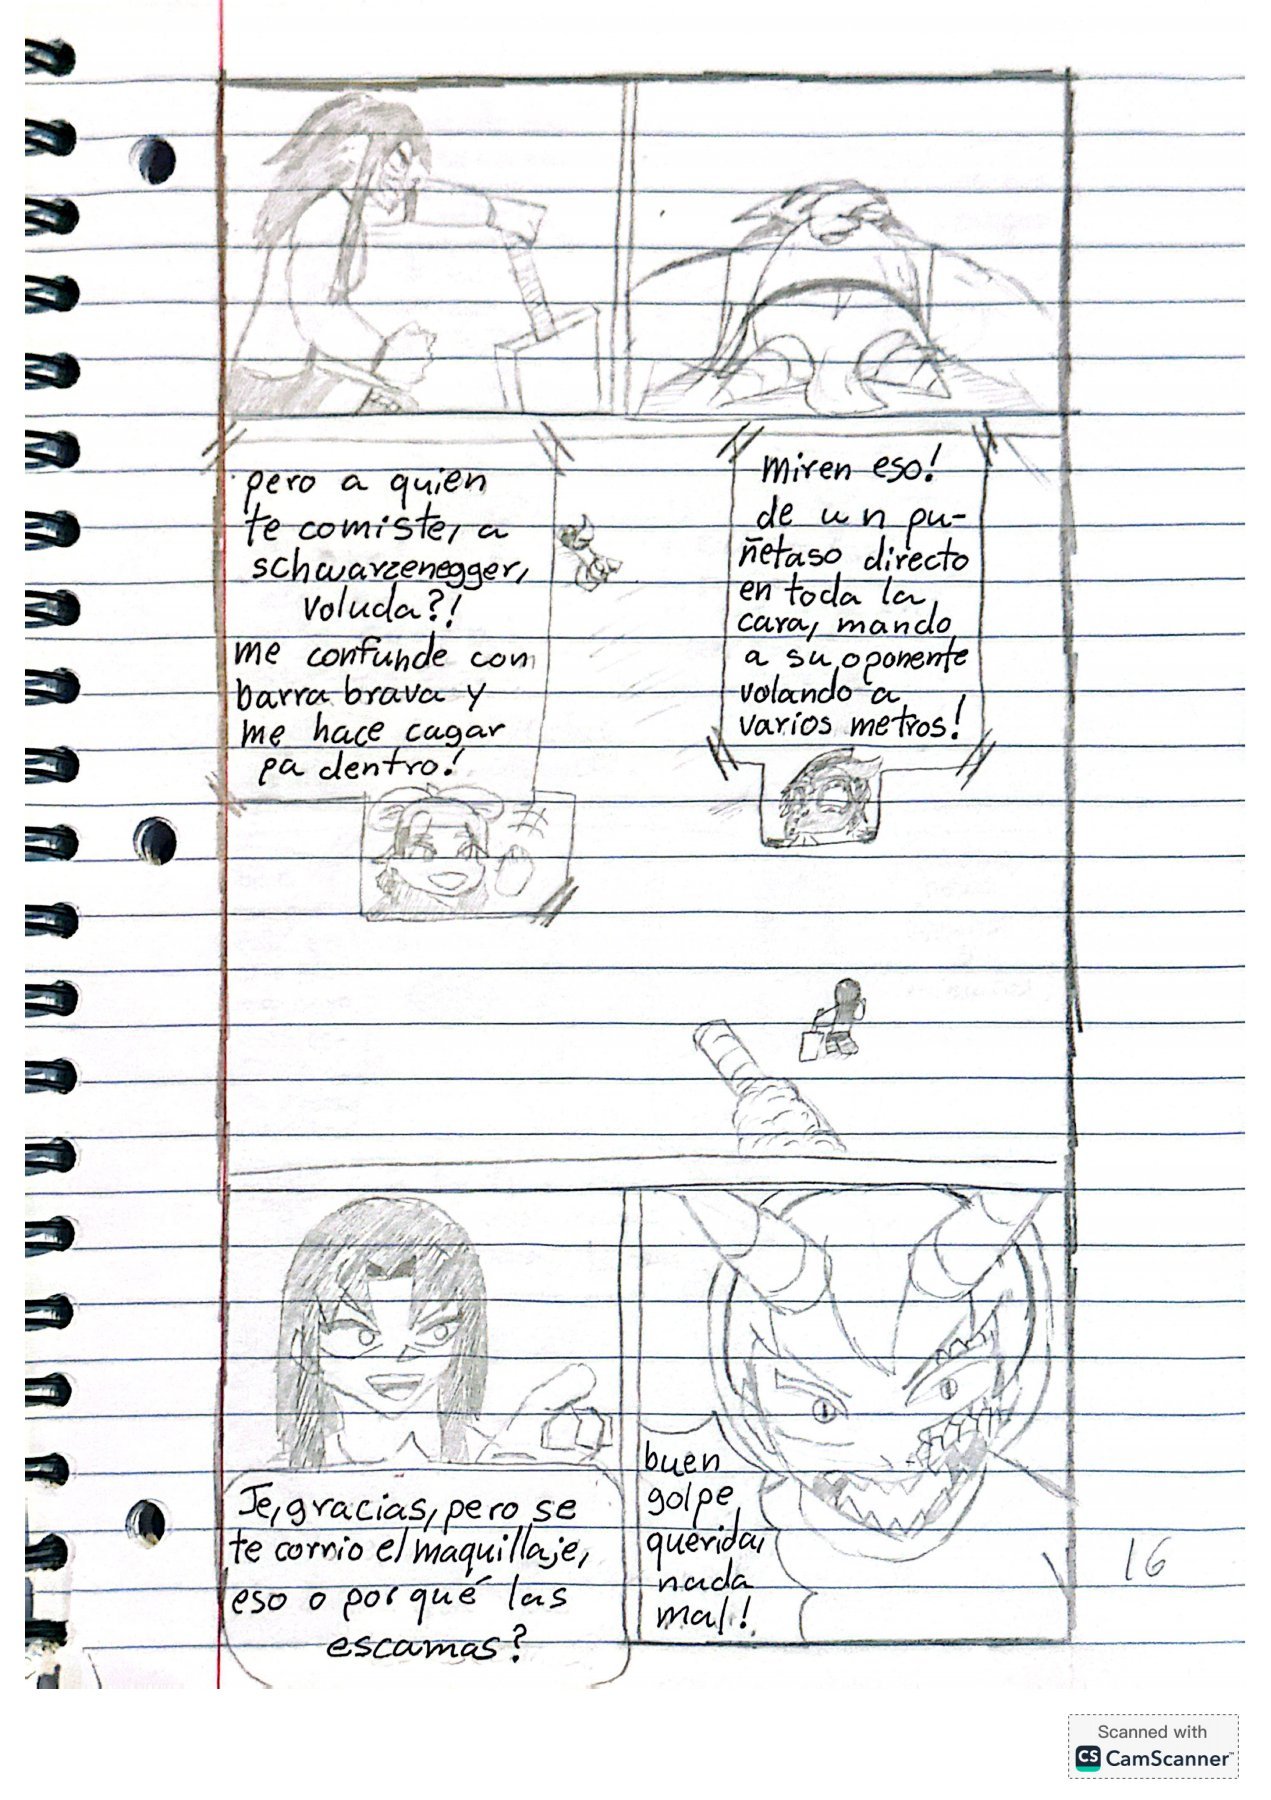 pero a quien
te comiste, a
schwarzenegger,
voluda?!
me confunde con
barra brava y
me hace cagar
pa dentro!
miren eso!
de un pu-
ñetaso directo
en toda la
cara, mando
a su oponente
volando a
varios metros!
Je, gracias, pero se
te corrio el maquillaje,
eso o por qué las
escamas?
buen
golpe
querida,
nada
mal!
16
Scanned with
CS CamScanner